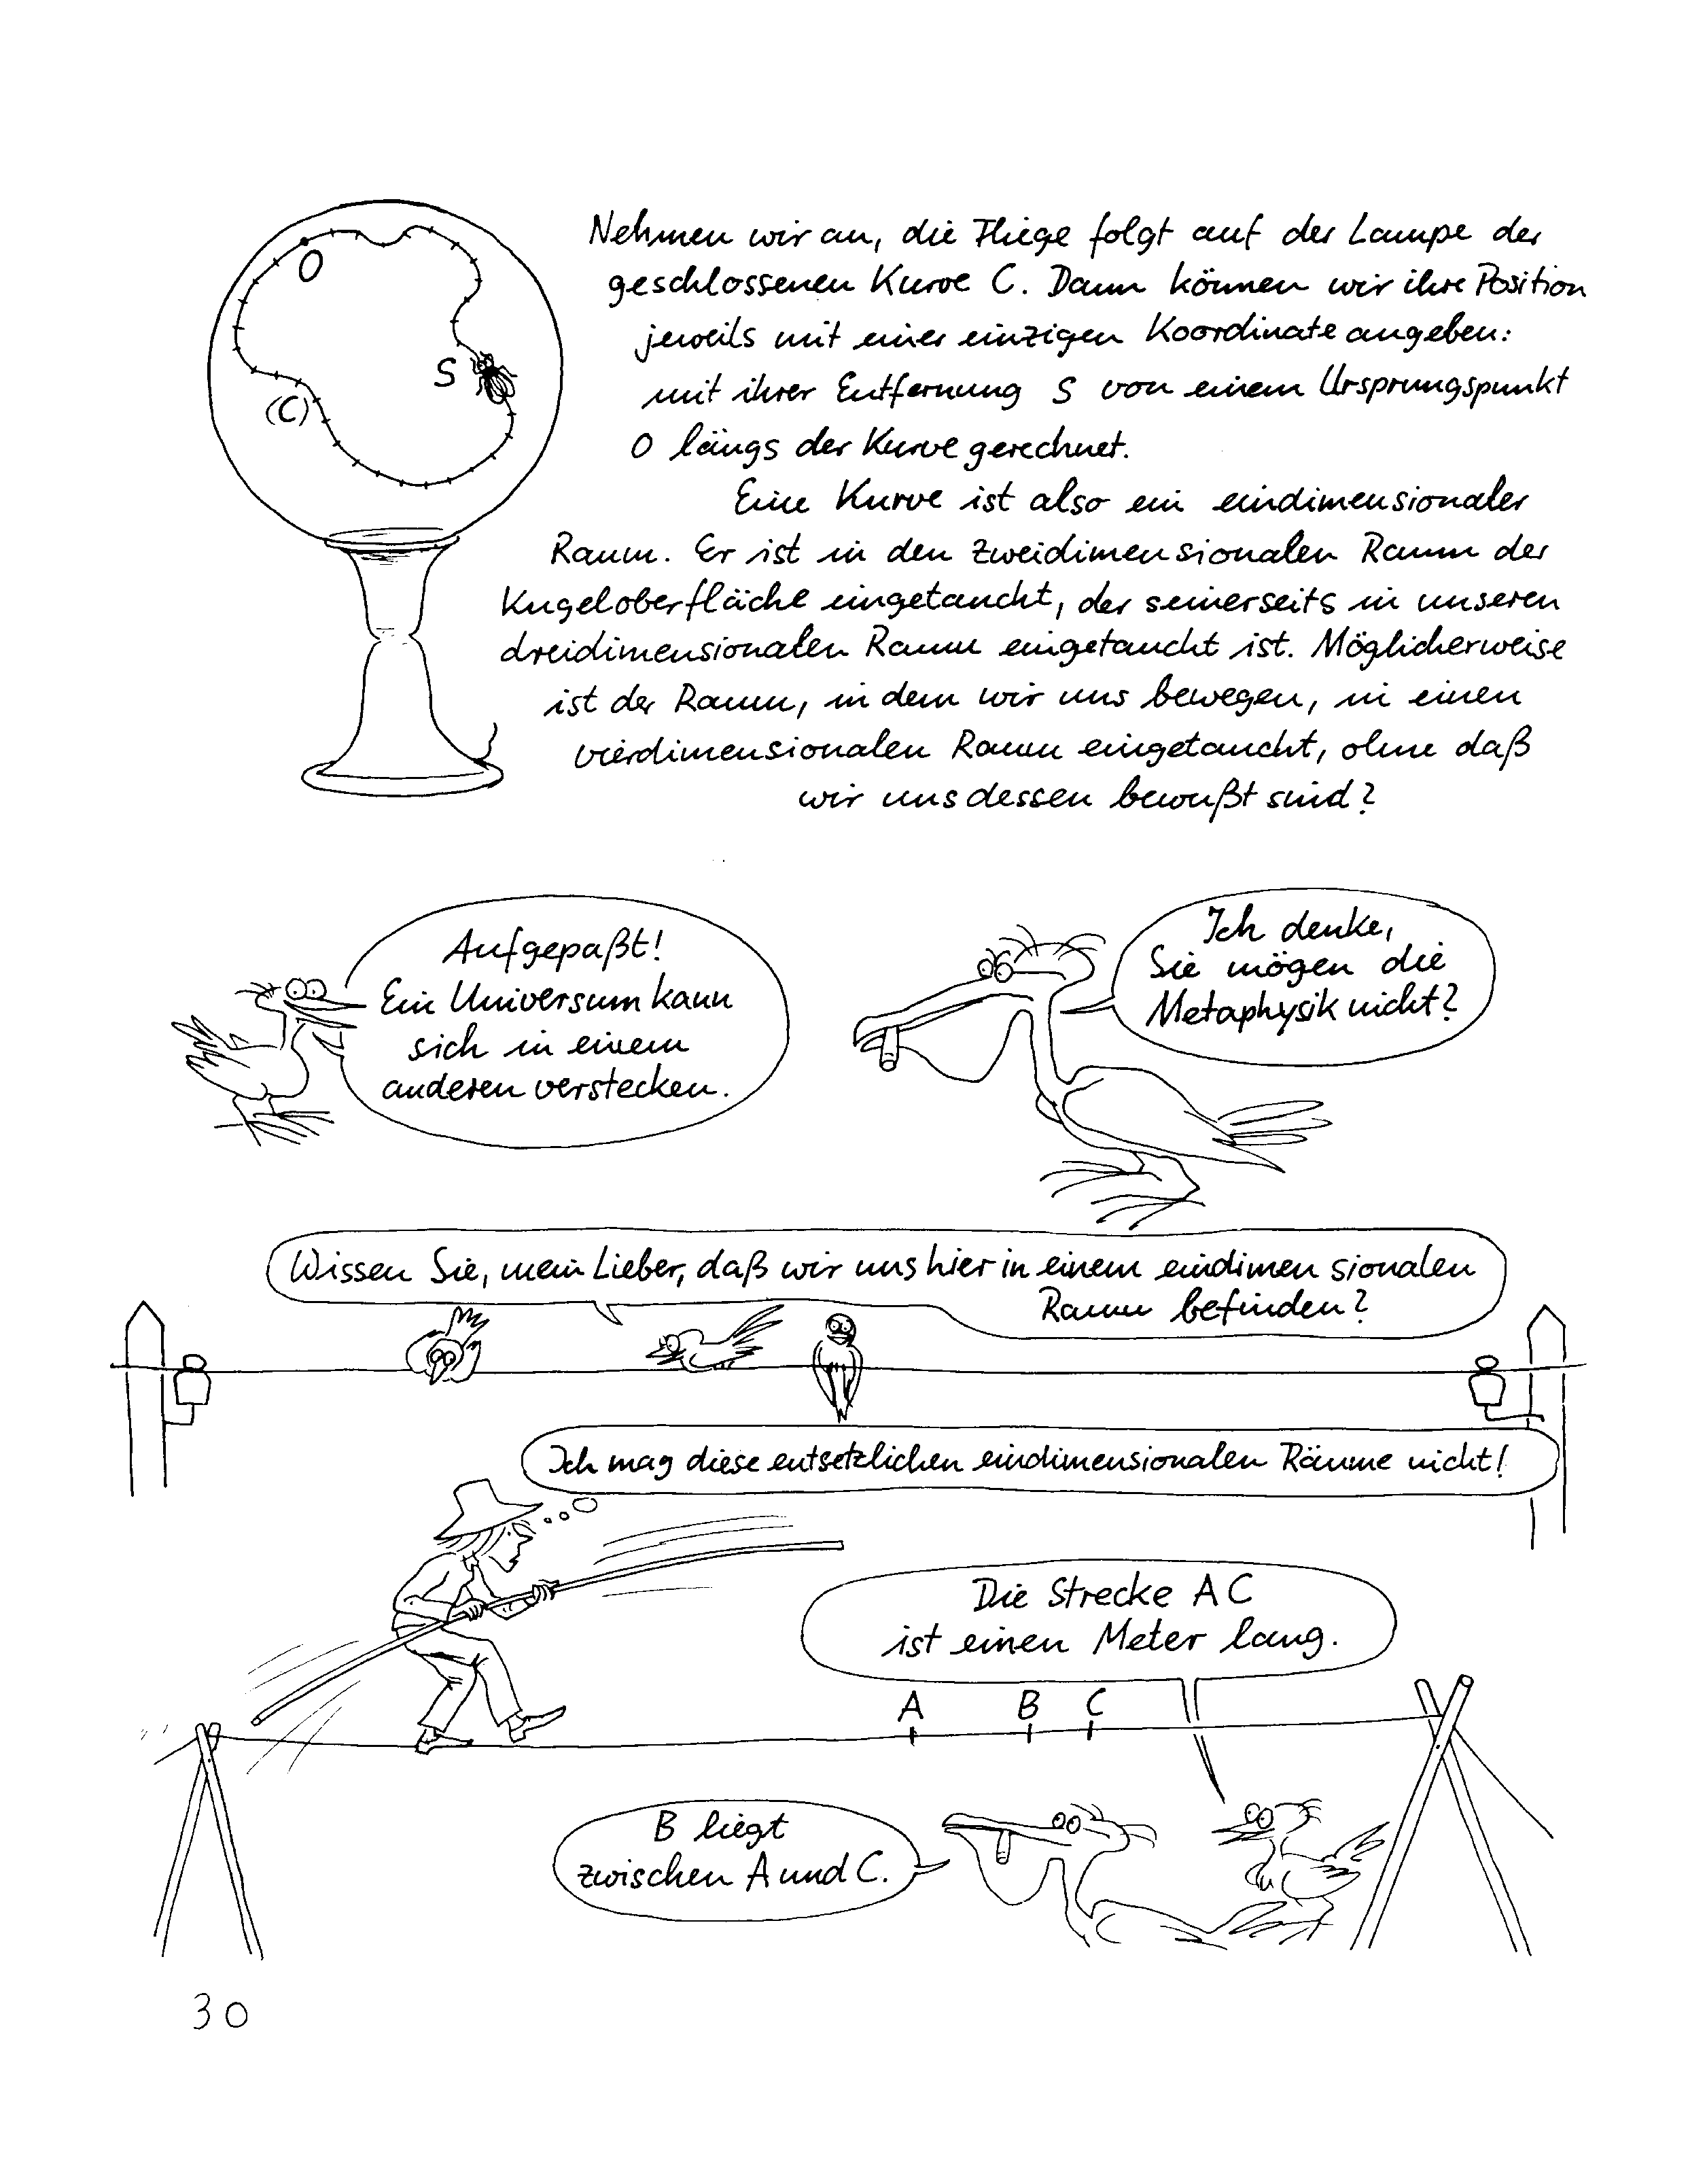 Nehmen wir an, die Fliege folgt auf der Lampe der
geschlossenen Kurve C. Dann können wir ihre Position
jeweils mit einer einzigen Koordinate angeben:
mit ihrer Entfernung S von einem Ursprungspunkt
O längs der Kurve gerechnet.
O
S
(C)
Eine Kurve ist also ein eindimensionaler
Raum. Er ist in den zweidimensionalen Raum der
Kugeloberfläche eingetaucht, der seinerseits in unseren
dreidimensionalen Raum eingetaucht ist. Möglicherweise
ist der Raum, in dem wir uns bewegen, in einen
vierdimensionalen Raum eingetaucht, ohne daß
wir uns dessen bewußt sind?
Aufgepaßt!
Ein Universum kann
sich in einem
anderen verstecken.
Ich denke,
Sie mögen die
Metaphysik nicht?
Wissen Sie, mein Lieber, daß wir uns hier in einem eindimensionalen
Raum befinden?
Ich mag diese entsetzlichen eindimensionalen Räume nicht!
Die Strecke AC
ist einen Meter lang.
A B C
B liegt
zwischen A und C.
30